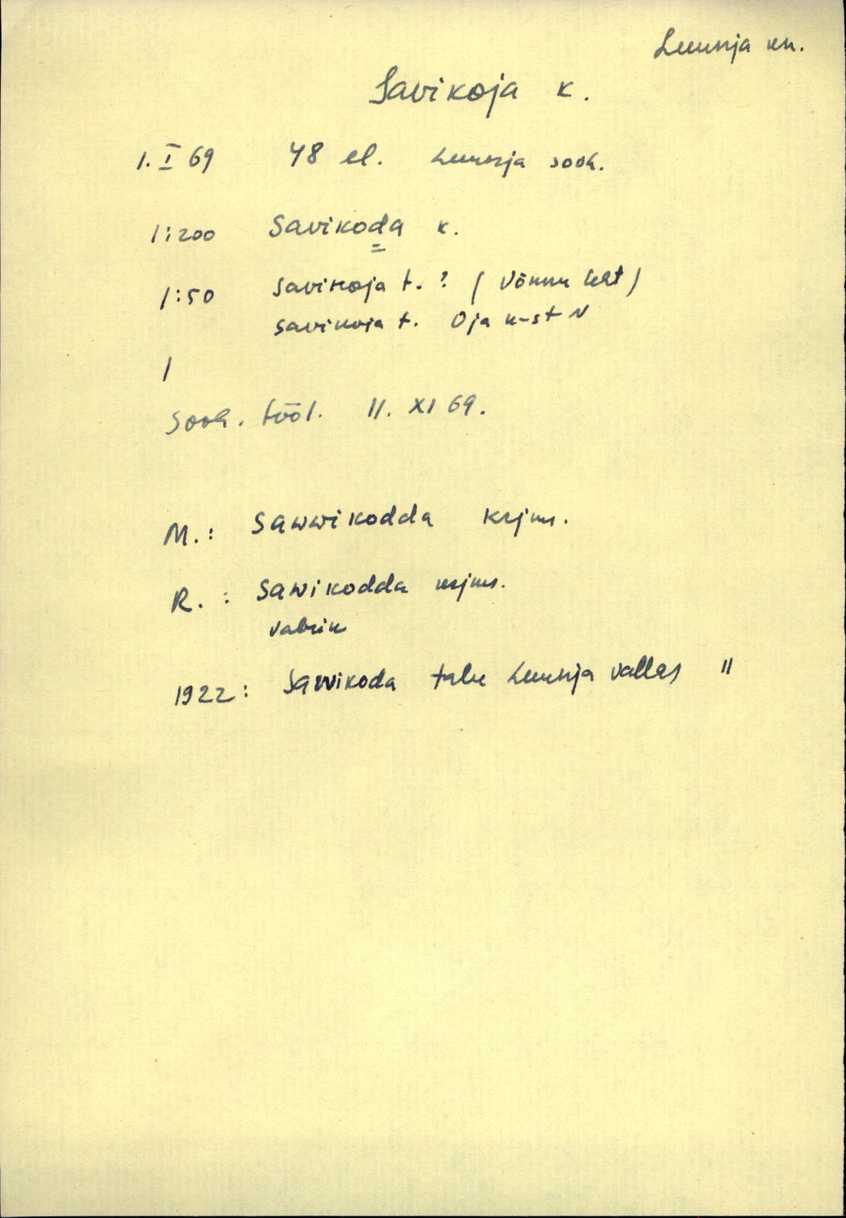 Luunja kn.
Savikoja k.
1. I 69 48 el. Luunja sooh.
1:200 Savikoda k.
1:50 Savikoja t. ? (Võnnu leht)
Savikoja t. Oja k-st N
1
Sooh. tööl. 11. XI 69.
M.: Sawwikodda krjms.
R. : Sawikodda krjms.
vabrik
1922: Sawikoda talu Luunja vallas "